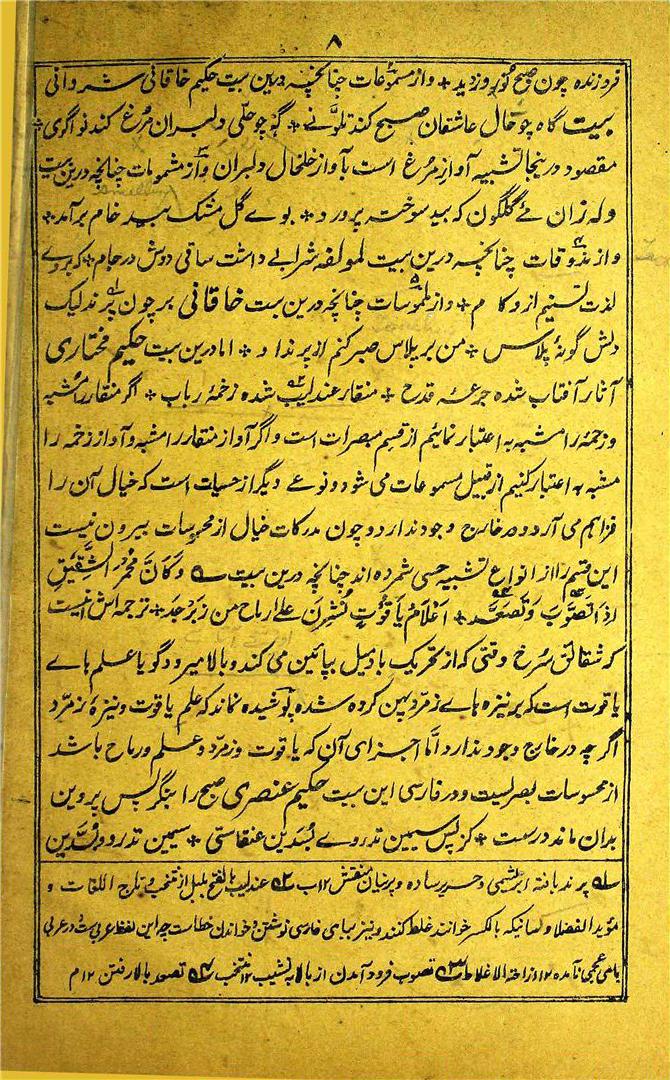 ۸
فروزنده چون صبح نوروز دید * و از مسموعات چنانچه درین بیت حکیم خاقانی شروانی
بیت گاه چو حال عاشقان صبح کند تلونے * گہ چو حلی دلبران مرغ کند نواگری *
مقصود درینجا تشبیه آواز مرغ است بآواز خلخال دلبران و از مشمومات چنانچه درین بیت
وله زان مے گلگون که بید سوخته پرورد * بوے گل مشک بید خام برآمد *
و از مذوقات چنانچه درین بیت لمولفه شرابے داشت ساقی دوش در جام * که بردے
لذت تسنیم ازو کام * و از ملموسات چنانچه درین بیت خاقانی بر چون پرند لیک
دلش گونۂ پلاس * من بر پلاس صبر کنم از پرند او * اما درین بیت حکیم مختاری
آثار آفتاب شده جرعۂ قدح * منقار عندلیب شده زخمۂ رباب * اگر منقار را مشبه
و زخمه را مشبه به اعتبار نمایم از قسم مبصرات است و اگر آواز منقار را مشبه و آواز زخمه را
مشبه به اعتبار کنیم از قبیل مسموعات می شود و نوعے دیگر از حسیات است که خیال آن را
فراهم می آرد و در خارج وجود ندارد و چون مدرکات خیال از محسوسات بیرون نیست
این قسم را از انواع تشبیه حسی شمرده اند چنانچه درین بیت وَکَأَنَّ مُحْمَرَّ الشَّقِیْقِ
اِذَا تَصَوَّبَ وَتَصَعَّدَ * اَعْلَامُ یَاقُوْتٍ نُشِرْنَ عَلٰی رِمَاحٍ مِنْ زَبَرْجَد * ترجمه اش اینست
که شقائق سرخ وقتی که از تحریک باد میل بپائین می کند و بالا میرود گویا علم ہاے
یاقوت است که بر نیزه ہاے زمرد پهن کرده شده پوشیده نماند که علم یاقوت و نیزۂ زمرد
اگر چه در خارج وجود ندارد امّا اجزای آن که یاقوت و زمرد و علم و رماح باشد
از محسوسات بصریست و در فارسی این بیت حکیم عنصری صبح را بنگر پس پروین
بدان ماند درست * کز پس سیمین تذروے بسدین عنقاستی * سیمین تذرو و بُسّدین
۱ پرند بافتۀ ابریشمی و حریر ساده و پرنیان منقش ۱۲ ب ۲ عندلیب بالفتح بلبل از منتخب و تاج اللغات و
مؤید الفضلا و کسانیکه بالکسر خوانند غلط کنند و نیز بیای فارسی نوشتن و خواندن خطاست چه این لفظ عربیست و در عربی
بای عجمی نآمده ۱۲ و از اخته الاغلاط ۳ تصوب فرود آمدن از بالا به نشیب ۱۲ منتخب ۴ تصعد بالا رفتن ۱۲ م